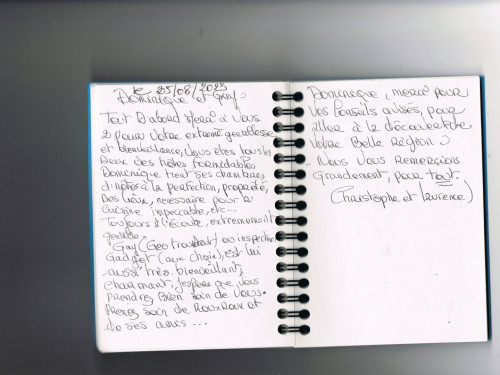 le 25/08/2023
Dominique et Guy.
Tout D'abord Merci à Vous
2 pour Votre extrême gentillesse
et bienveillance, Vous êtes tous les
Deux des hôtes formidables
Dominique tient ses chambres
d'hôtes à la perfection, propreté,
des lieux, necessaire pour la
cuisine impeccable, etc...
Toujours à l'écoute, extremement
gentille.
Guy (Géo trouvetout) ou inspecteur
Gadget (aux choix), est lui
aussi très bienveillant,
charmant. J'espère que vous
prendrez bien soin de Vous.
Prenez soin de Rouxroux et
de ses amis...
Dominique, merci pour
Vos Conseils avisés, pour
aller à la découverte de
Votre Belle Région.
Nous Vous Remercions
Grandement, pour tout.
(Christophe et Laurence)